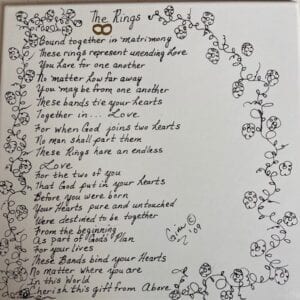 The Rings
Bound together in matrimony
These rings represent unending Love
You have for one another
No matter how far away
You may be from one another
These bands tie your hearts
Together in... Love
For when God joins two hearts
No man shall part them
These Rings have an endless
Love
For the two of you
That God put in your hearts
Before you were born
Your Hearts pure and untouched
Were destined to be together
From the beginning
As part of God's Plan
For your lives
These Bands bind your Hearts
No matter where you are
In this World
Cherish this gift from Above
©
'09